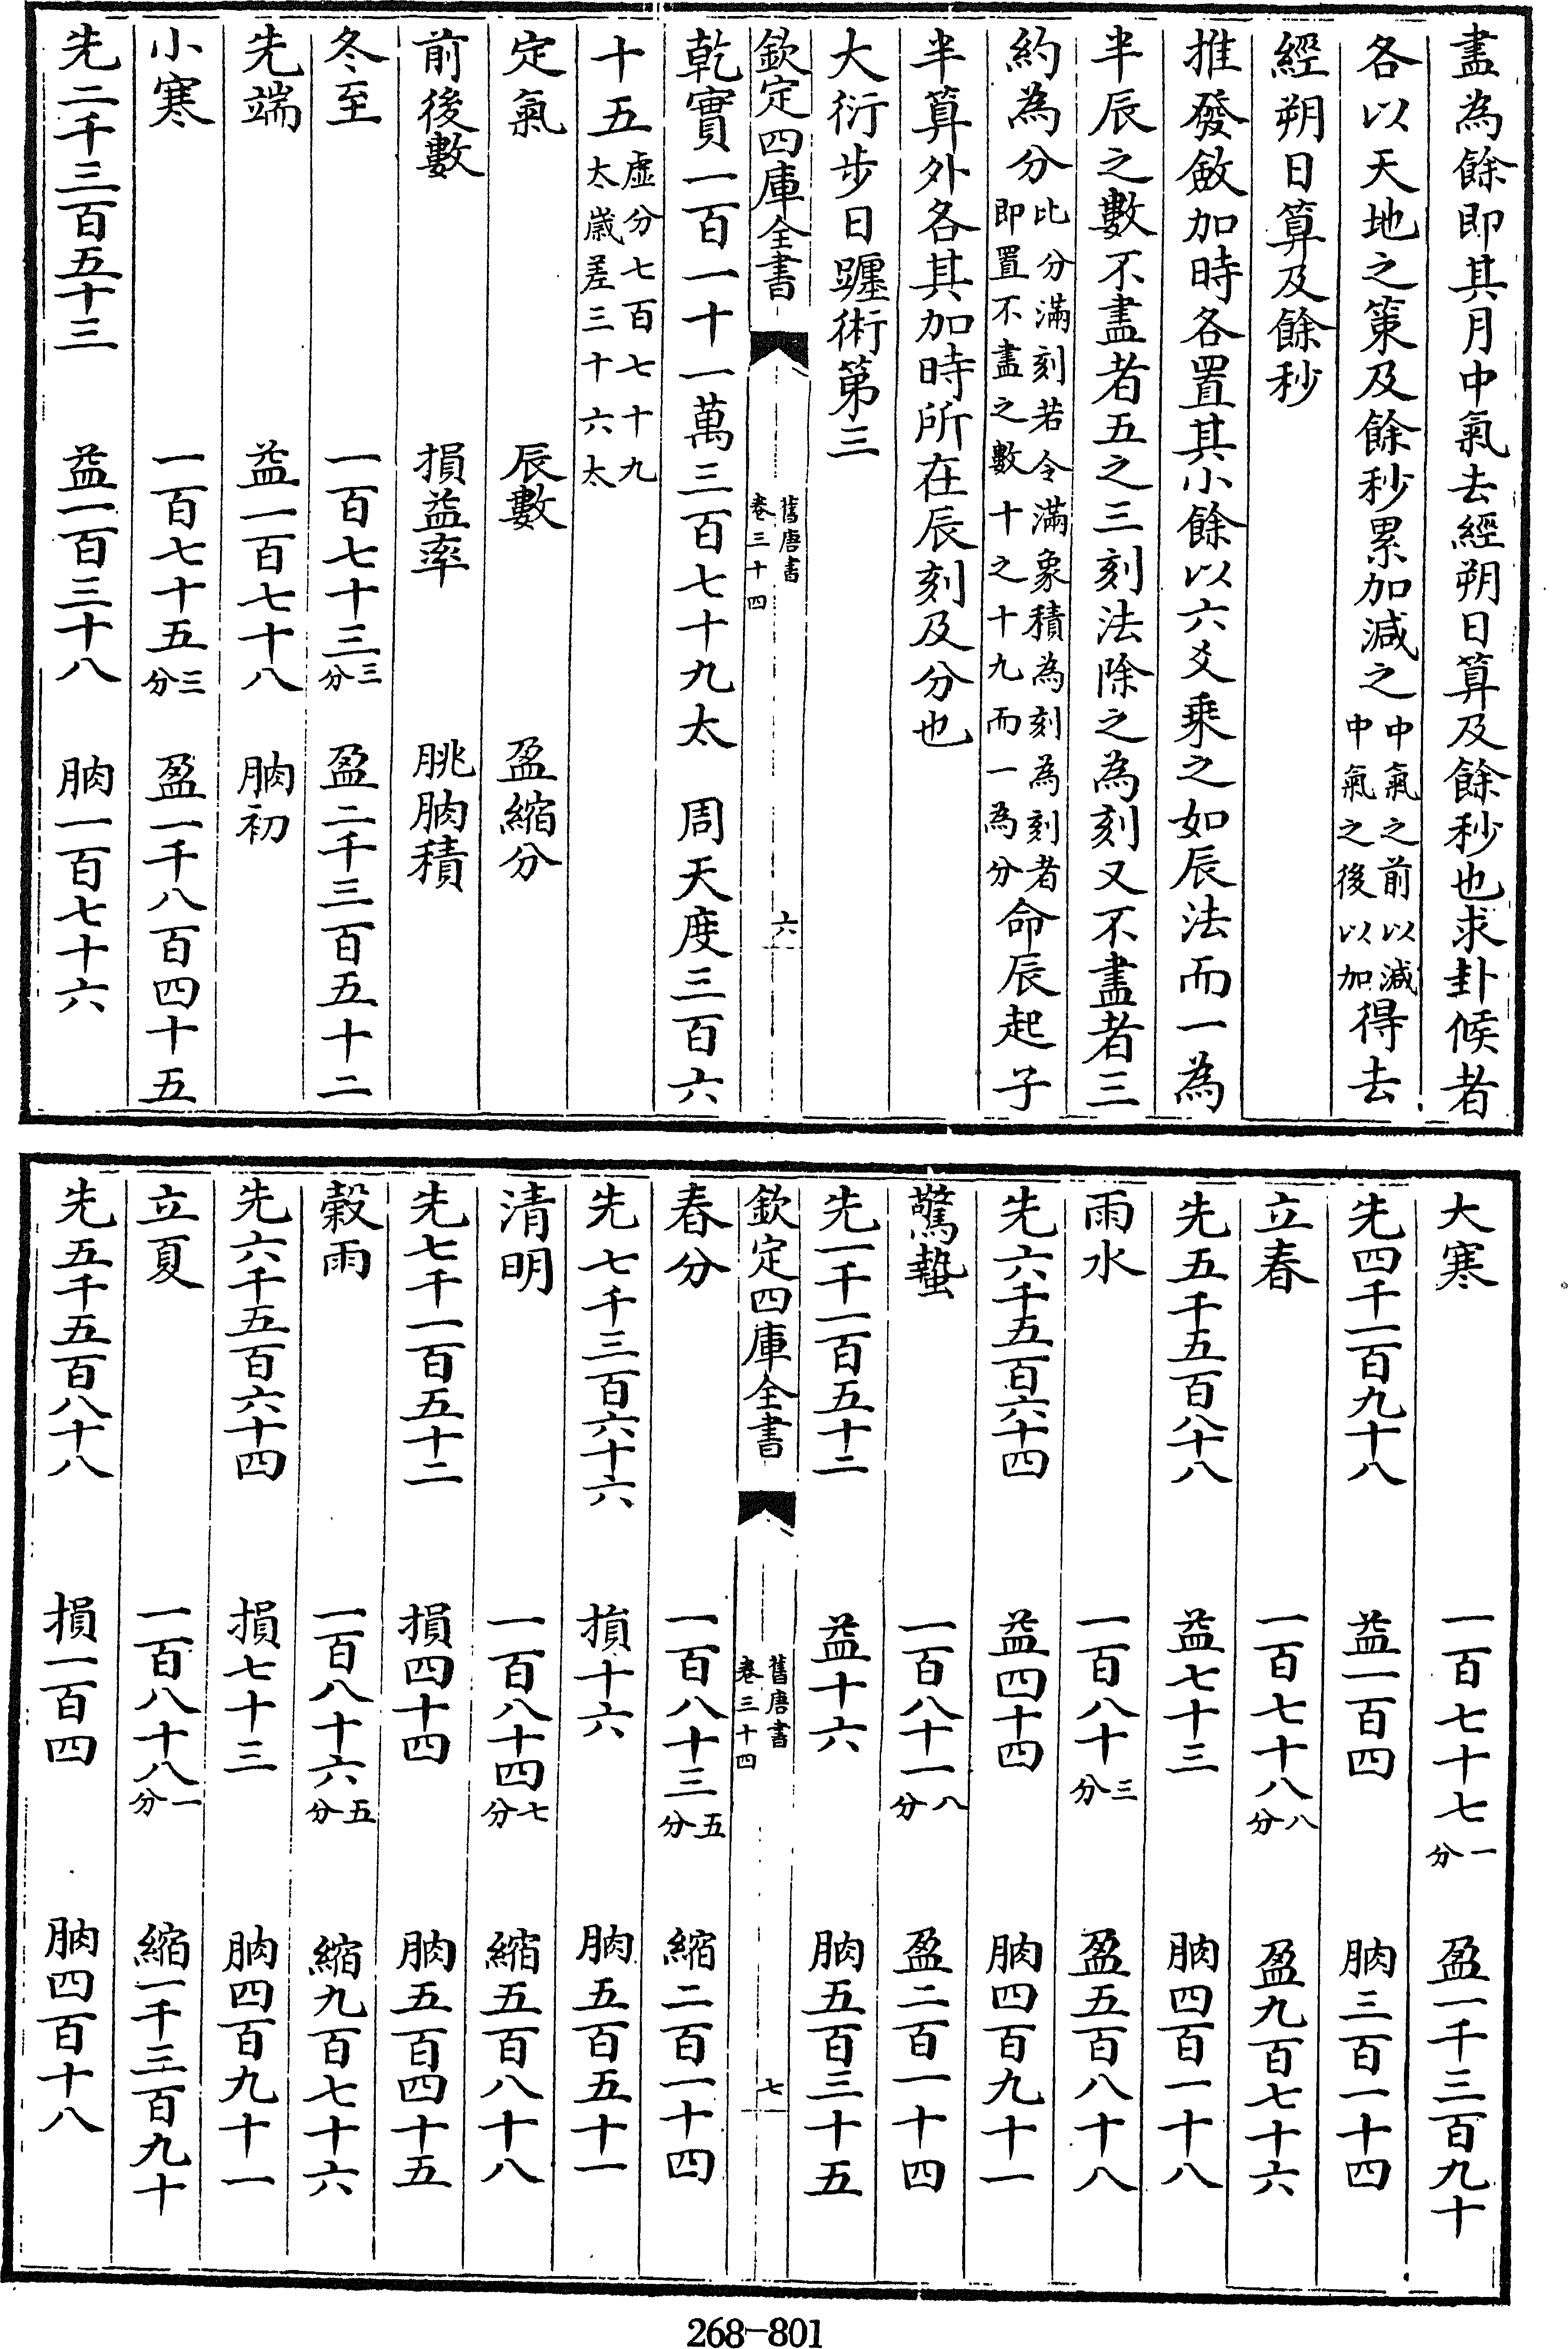 盡為餘即其月中氣去經朔日算及餘秒也求卦候者
各以天地之策及餘秒累加減之中氣之前以減中氣之後以加得去
經朔日算及餘秒
推發斂加時各置其小餘以六爻乘之如辰法而一為
半辰之數不盡者五之三刻法除之為刻又不盡者三
約為分比分滿刻若令滿象積為刻為刻者即置不盡之數十之十九而一為分命辰起子
半算外各其加時所在辰刻及分也
大衍步日躔術第三
欽定四庫全書
舊唐書
卷三十四
六
乾實一百一十一萬三百七十九太 周天度三百六
十五虛分七百七十九太歲差三十六太
定氣 辰數 盈縮分
前後數 損益率 朓朒積
冬至 一百七十三三分 盈二千三百五十二
先端 益一百七十八 朒初
小寒 一百七十五三分 盈一千八百四十五
先二千三百五十三 益一百三十八 朒一百七十六
大寒 一百七十七一分 盈一千三百九十
先四千一百九十八 益一百四 朒三百一十四
立春 一百七十八八分 盈九百七十六
先五千五百八十八 益七十三 朒四百一十八
雨水 一百八十三分 盈五百八十八
先六千五百六十四 益四十四 朒四百九十一
驚蟄 一百八十一八分 盈二百一十四
先一千一百五十二 益十六 朒五百三十五
欽定四庫全書
舊唐書
卷三十四
七
春分 一百八十三五分 縮二百一十四
先七千三百六十六 損十六 朒五百五十一
清明 一百八十四七分 縮五百八十八
先七千一百五十二 損四十四 朒五百四十五
穀雨 一百八十六五分 縮九百七十六
先六千五百六十四 損七十三 朒四百九十一
立夏 一百八十八一分 縮一千三百九十
先五千五百八十八 損一百四 朒四百十八
268-801